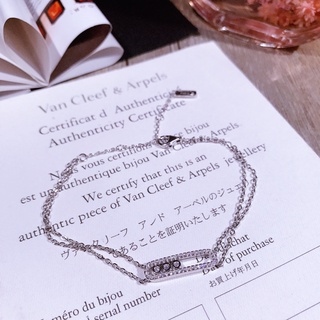 Van Cleef & Arpels
Certificat d Authenticit
Authenticity Certificate
Nous vous certifi bijou
est un authentique bijou Van Cleef
We certify that this is an
authentic piece of Van Cleef & Arpels jewellery
ヴァン クリーフ アンド アーペルのジュエ
あることを証明いたします
Date d'achat
Date of purchase
お買上げ年月日
Numéro du bijou
serial number